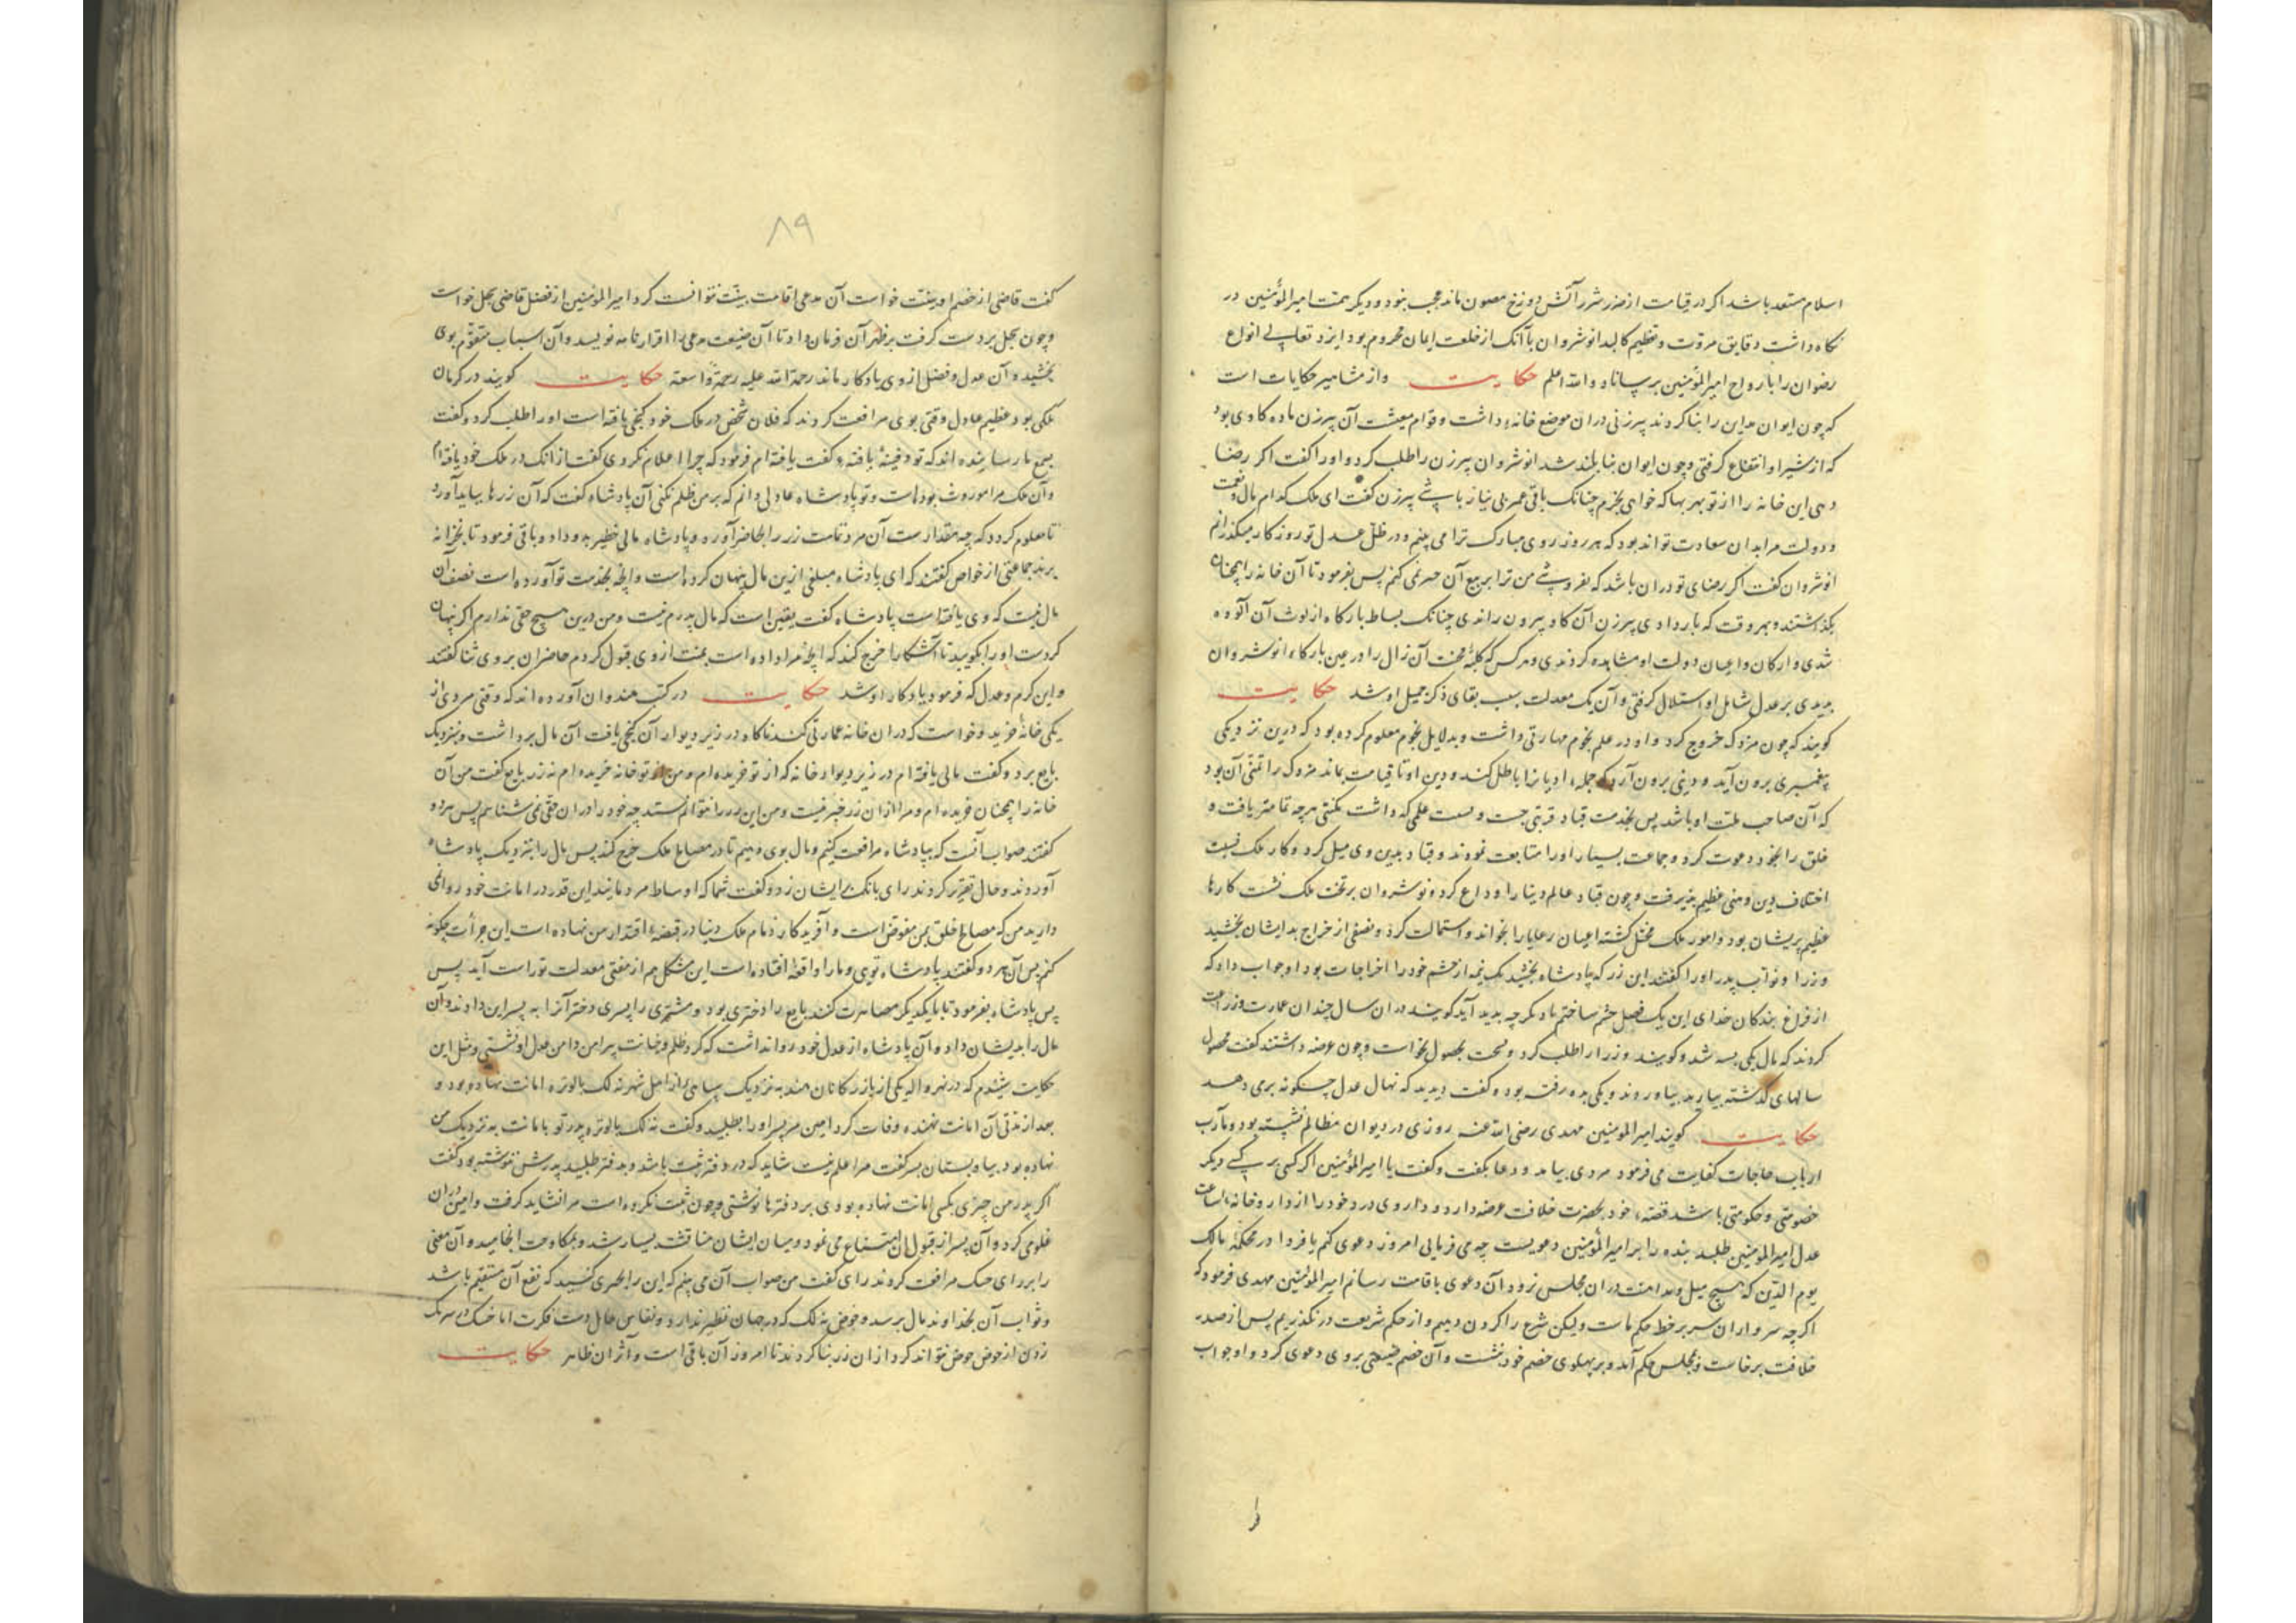 اسلام مستعد باشد اکر در قیامت از ضرر شرر آتش دوزخ مصون ماند عجب نبود و دیکر همت امیرالمؤمنین در
نکاه داشت دقایق مروت و تعظیم کالبد انوشروان با آنک از خلعت ایمان محروم بود ایزد تعالی انواع
رضوان را بارواح امیرالمؤمنین برساناد والله اعلم حکایت و از مشاهیر حکایات است
که چون ایوان مداین را بنا کردند پیرزنی دران موضع خانه داشت و قوام معیشت آن پیرزن ماده کاوی بود
که از شیر او انتفاع کرفتی و چون ایوان بنا بلند شد انوشروان پیرزن را طلب کرد و او را کفت اکر رضا
دهی این خانه را از تو بهر بها که خواهی بخرم چنانک باقی عمر بی نیاز باشی پیرزن کفت ای ملک کدام مال و نعمت
و دولت مرا بدان سعادت تواند بود که هر روز روی مبارک ترا می بینم و در ظل عدل تو روزکار میکذرانم
انوشروان کفت اکر رضای تو دران باشد که نفروشی من ترا بر بیع آن جبر نمی کنم پس بفرمود تا آن خانه را همچنان
بکذاشتند و بهر وقت که بار دادی پیرزن آن کاو بیرون راندی چنانک بساط بارکاه از لوث آن آلوده
شدی و ارکان و اعیان دولت او مشاهده کردندی و هرکس که کلبه محنت آن زال را در عین بارکاه انوشروان
بدیدی بر عدل شامل او استدلال کرفتی و آن یک معدلت سبب بقای ذکر جمیل او شد حکایت
کویند که چون مزدک خروج کرد و او در علم نجوم مهارتی داشت و بدلایل نجوم معلوم کرده بود که درین نزدیکی
پیغمبری برون آید و دینی برون آرد که جمله ادیانرا باطل کند و دین او تا قیامت بماند مزدک را تمنی آن بود
که آن صاحب ملت او باشد پس بخدمت قباد قربتی جست و بسعت علمی که داشت مکنتی هرچه تمامتر یافت و
خلق را بخود دعوت کرد و جماعت بسیار او را متابعت نمودند و قباد بدین وی میل کرد و کار ملک نسبت
اختلاف دین وهنی عظیم پذیرفت و چون قباد عالم دنیا را وداع کرد و نوشروان بر تخت ملک نشست کارها
عظیم پریشان بود و امور ملک مختل کشته اعیان رعایا را بخواند و استمالت کرد و نصفی از خراج بدایشان بخشید
وزرا و نواب پدر او را کفتند این زر که پادشاه بخشید یک نیمه از حشم خود را اخراجات بود او جواب داد که
از فراغ بندکان خدای این یک فصل حشم ساختم تا دیکر چه پدید آید کویند دران سال چندان عمارت و زراعت
کردند که مال یکی بسه شد و کویند وزرا را طلب کرد و نسخت محصول بخواست و چون عرضه داشتند کفت محصول
سالهای کذشته بیارید بیاوردند و یکی بده رفته بود کفت دیدید که نهال عدل چکونه بر می دهد
حکایت کویند امیرالمؤمنین مهدی رضی الله عنه روزی در دیوان مظالم نشسته بود و مآرب
ارباب حاجات کفایت می فرمود مردی بیامد و دعا بکفت و کفت یا امیرالمؤمنین اکر کسی بر کسی دیکر
خصومتی و حکومتی باشد قصه خود بحضرت خلافت عرضه دارد و داروی درد خود را از داروخانه
عدل امیرالمؤمنین طلبد بنده را بر امیرالمؤمنین دعویست چه می فرمایی امروز دعوی کنم یا فردا در محکمه مالک
یوم الدین که هیچ میل و مداهنت دران مجلس نرود آن دعوی باقامت رسانم امیرالمؤمنین مهدی فرمود که
اکرچه سرواران سر بر خط حکم ماست ولیکن شرع را کردن دهیم و از حکم شریعت در نکذریم پس از صدر
خلافت برخاست و بمجلس حکم آمد و بر پهلوی خصم خود نشست و آن خصم بر وی دعوی کرد و او جواب
۸۹
کفت قاضی از خصم او بینت خواست آن مدعی اقامت بینت نتوانست کرد امیرالمؤمنین از فضل قاضی سجل خواست
و چون سجل بردست کرفت بر ظهر آن فرمان داد تا آن ضیعت مدعی را اقرار نامه نویسد و آن اسباب متقوم بوی
بخشید و آن عدل و فضل از وی یادکار ماند رحمة الله علیه رحمة واسعة حکایت کویند در کرمان
ملکی بود عظیم عادل وقتی بوی مرافعت کردند که فلان شخص در ملک خود کنجی یافته است او را طلب کرد و کفت
بسمع ما رسانیده اند که تو دفینهٔ یافته کفت یافته ام فرمود که چرا اعلام نکردی کفت از آنک در ملک خود یافته ام
وآن ملک مرا موروث بودست و تو پادشاه عادلی دانم که بر من ظلم نکنی آن پادشاه کفت که آن زرها بباید آورد
تا معلوم کردد که چه مقدارست آن مرد تمامت زر را بحاضر آورد و پادشاه مالی خطیر بدو داد و باقی فرمود تا بخزانه
برند جماعتی از خواص کفتند که ای پادشاه مبلغی ازین مال پنهان کردست و آنچه بخدمت تو آورده است نصف آن
مال نیست که وی یافته است پادشاه کفت یقین است که مال پدرم نیست و من درین هیچ حقی ندارم اکر پنهان
کردست او را بکویید تا آشکارا خرج کند که آنچه مرا داده است بمنت از وی قبول کردم حاضران بر وی ثنا کفتند
و این کرم و عدل که فرمود یادکار او شد حکایت در کتب هندوان آورده اند که وقتی مردی از
یکی خانهٔ خرید و خواست که دران خانه عمارتی کند ناکاه در زیر دیوار آن کنجی یافت آن مال برداشت و بنزدیک
بایع برد و کفت مالی یافته ام در زیر دیوار خانه که از تو خریده ام و من از تو خانه خریده ام نه زر بایع کفت من آن
خانه را همچنان فروخته ام و مرا ازان زر خبر نیست و من این زر را نتوانم ستد چه خود را دران حقی نمی شناسم پس هر دو
کفتند صواب آنست که بپادشاه مرافعت کنیم و مال بوی دهیم تا در مصالح ملک خرج کند پس مال را بنزدیک پادشاه
آوردند و حال تقریر کردند رای بانک بر ایشان زد و کفت شما که اوساط مردمانید این قدر در امانت خود روا نمی
دارید من که مصالح خلق بمن مفوض است و آفریدکار زمام ملک دنیا در قبضه اقتدار من نهاده است این جرأت چکونه
کنم پس آن هر دو کفتند پادشاه تویی و ما را واقعهٔ افتاده است این مشکل هم از مفتی معدلت تو راست آید پس
پس پادشاه بفرمود تا با یکدیکر مصاهرت کنند بایع را دختری بود و مشتری را پسری دختر آنرا به پسر این دادند و آن
مال را بدیشان داد و آن پادشاه از عدل خود روا نداشت که کرد ظلم و خیانت پیرامن دامن عدل او نشستی و مثل این
حکایت شنیدم که در نهرواله یکی از بازرکانان هند به نزدیک یکی از اهل شهر نه لک بالوتره امانت نهاده بود و
بعد از مدتی آن امانت نهنده وفات کرد امین مر پسر او را بطلبید و کفت نه لک بالوتره پدر تو بامانت به نزدیک من
نهاده بود بیا و بستان پسر کفت مرا علم نیست شاید که در دفتر ثبت باشد و بدفتر طلبید پدرش ننوشته بود کفت
اکر پدر من چیزی بکسی امانت نهاده بودی بر دفترها نوشتی و چون ثبت نکرده است مرا نشاید کرفت و امین دران
غلوی کرد و آن پسر از قبول آن امتناع می نمود و میان ایشان مناقشه بسیار شد و بمکاوحت انجامید و آن معنی
را بر رای مرافعت کردند رای کفت من صواب آن می بینم که این را بخیری کنید که نفع آن مستقیم باشد
و ثواب آن بخداوند مال برسد و حوض نه لک که در جهان نظیر ندارد و نقاس فکرت
زدن از حوض نتواند کرد ازان زر بنا کردند تا امروز آن باقی است و آثر آن ظاهر حکایت